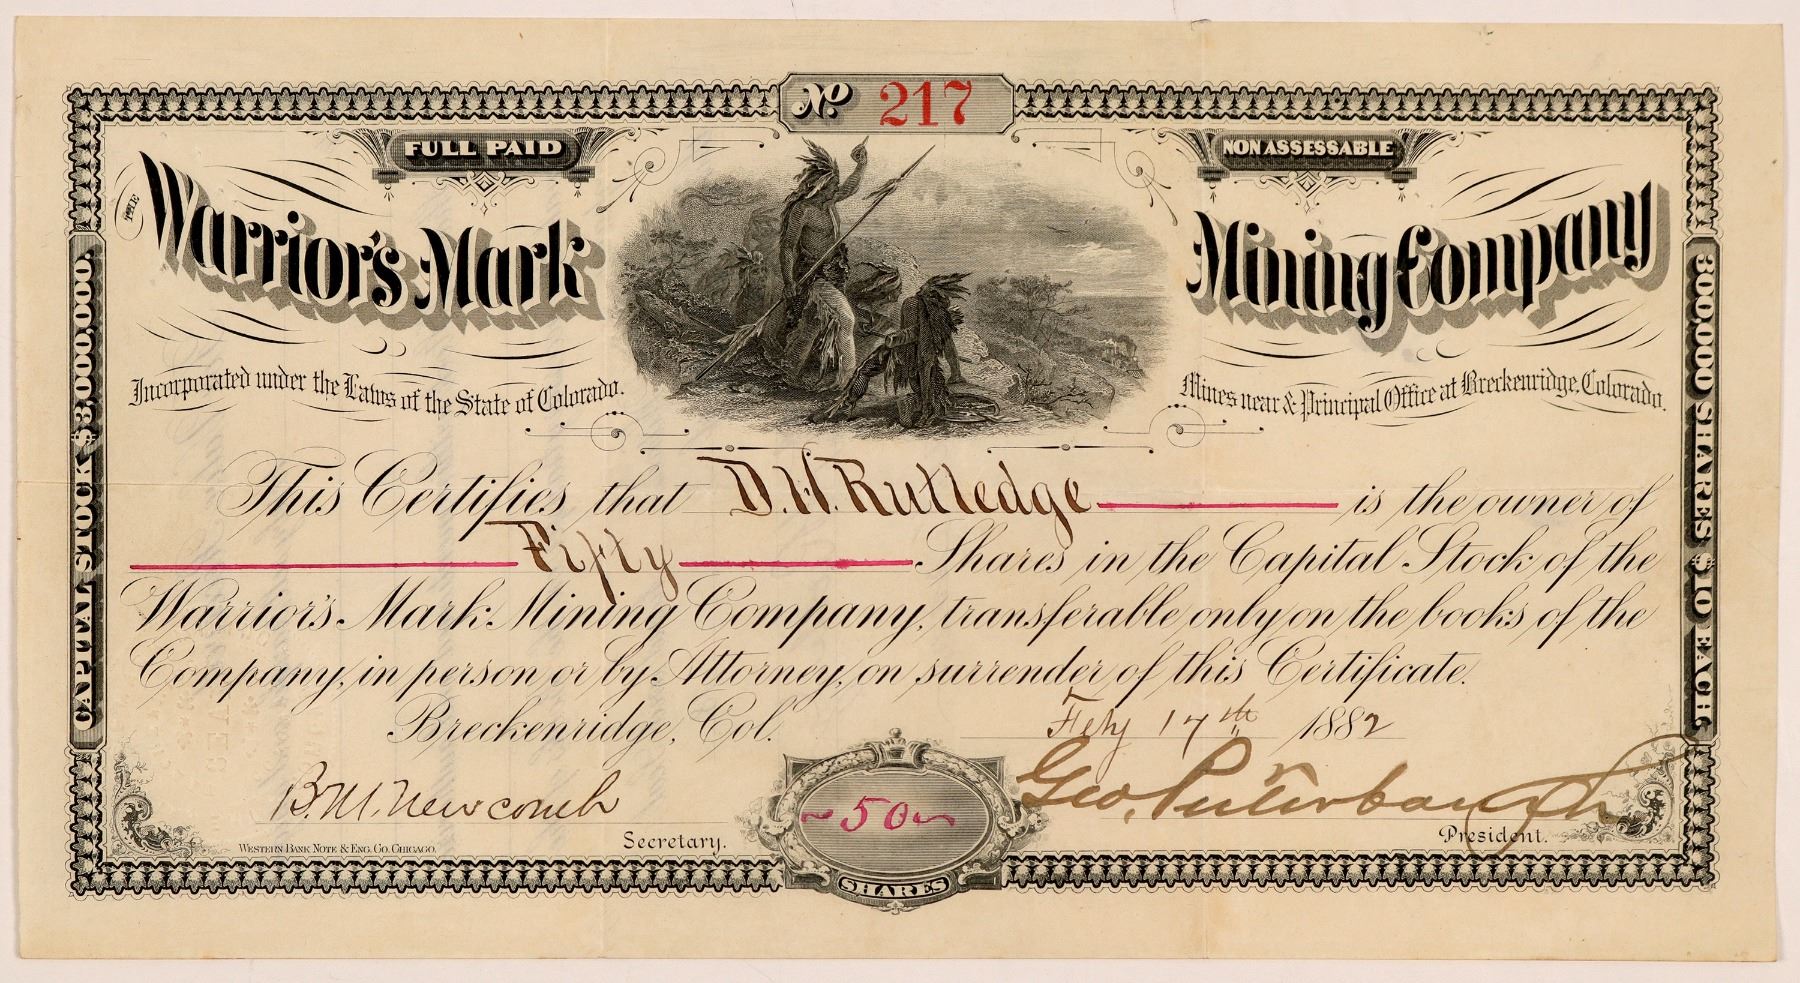 No 217
FULL PAID
NON ASSESSABLE
THE Warrior's Mark Mining Company
Incorporated under the Laws of the State of Colorado.
Mines near & Principal Office at Breckenridge, Colorado.
CAPITAL STOCK $3,000,000.
300,000 SHARES $10 EACH.
This Certifies that D. H. Rutledge is the owner of
Fifty Shares in the Capital Stock of the
Warrior's Mark Mining Company, transferable only on the books of the
Company, in person or by Attorney, on surrender of this Certificate.
Breckenridge, Col. Feby 17th 1882
B. M. Newcomb Secretary.
Geo. Puterbaugh President.
50
SHARES
WESTERN BANK NOTE & ENG. CO. CHICAGO.